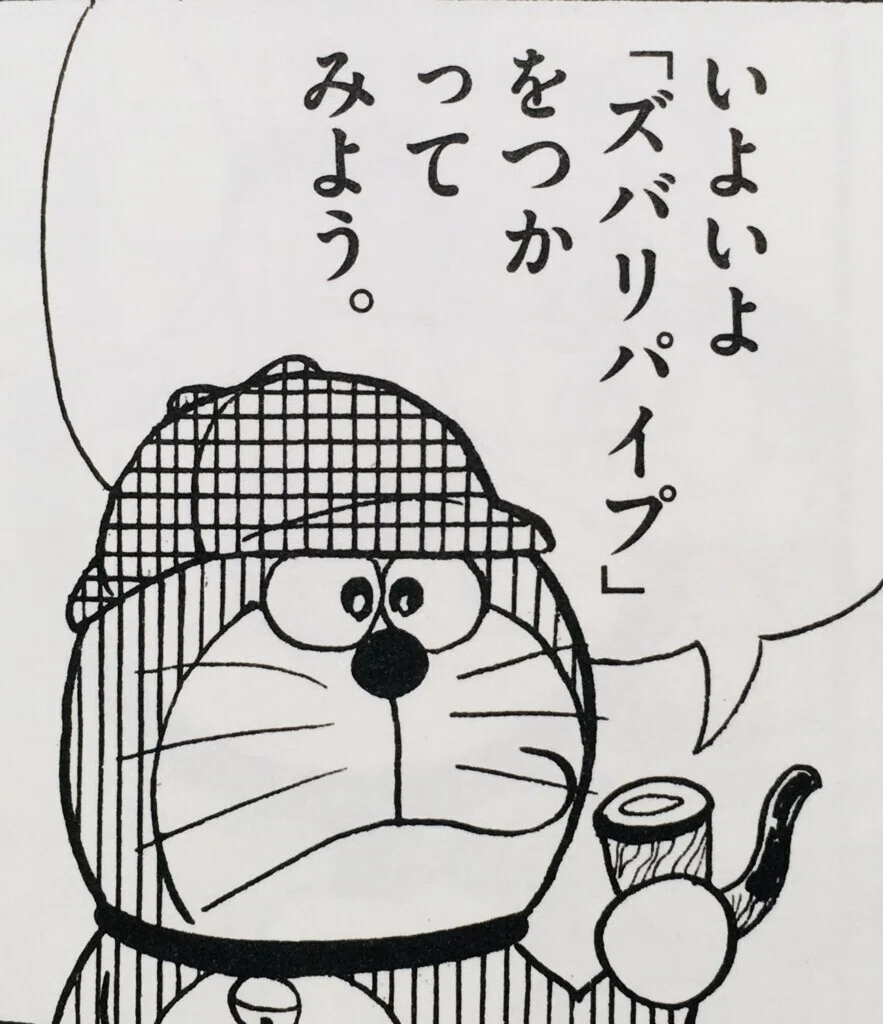 いよいよ
「ズバリパイプ」
をつか
って
みよう。